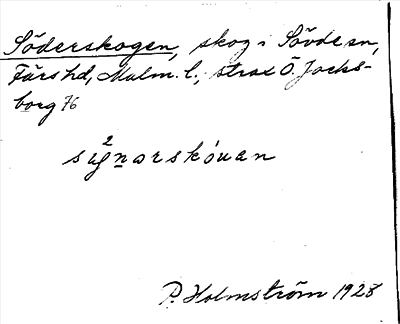 Söderskogen, skog i Sövde sn,
Färs hd, Malm. l., strax Ö. Jocks-
borg 76
2
sɥg̲norskóuan
P. Holmström 1928